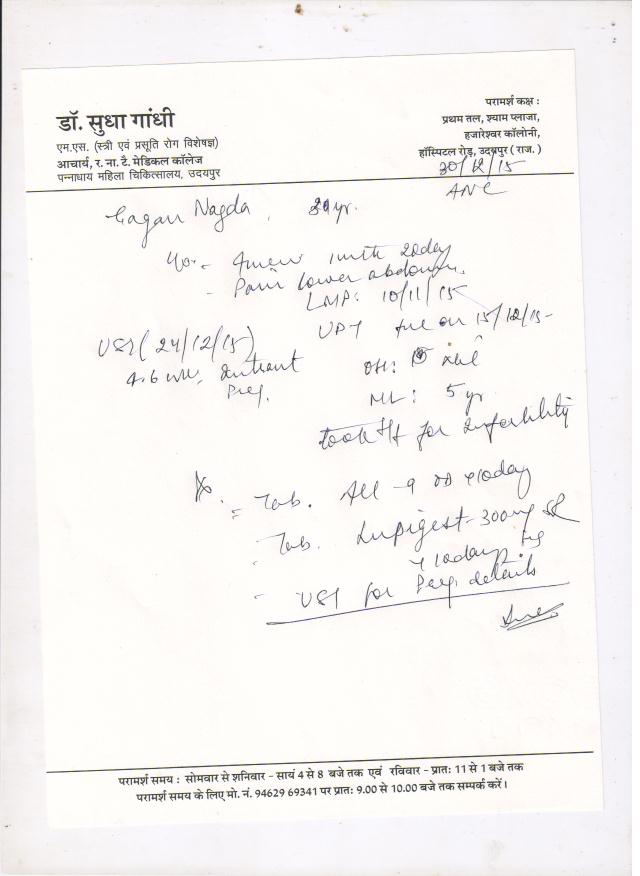 डॉ. सुधा गांधी
एम.एस. (स्त्री एवं प्रसूति रोग विशेषज्ञ)
आचार्य, र. ना. टै. मेडिकल कॉलेज
पन्नाधाय महिला चिकित्सालय, उदयपुर
परामर्श कक्ष :
प्रथम तल, श्याम प्लाजा,
हजारेश्वर कॉलोनी,
हॉस्पिटल रोड़, उदयपुर ( राज. )
30/12/15
ANC
Gagan Nagda, yr.
- 1 month 20 day
- Pain lower abdomen.
LMP: 10/11/15
UPT +ve on 15/12/15
USG (24/12/15)
4.6 wk, Intraut
Preg.
OH:
ML: 5 yr
took t/t for Infertility
Rx
= Tab. All-9 OD x 10 day
- Tab. Lupigest-300 mg SR
x 10 day
- USG for Preg. details
परामर्श समय : सोमवार से शनिवार - सायं 4 से 8 बजे तक एवं रविवार - प्रातः 11 से 1 बजे तक
परामर्श समय के लिए मो. नं. 94629 69341 पर प्रातः 9.00 से 10.00 बजे तक सम्पर्क करें।